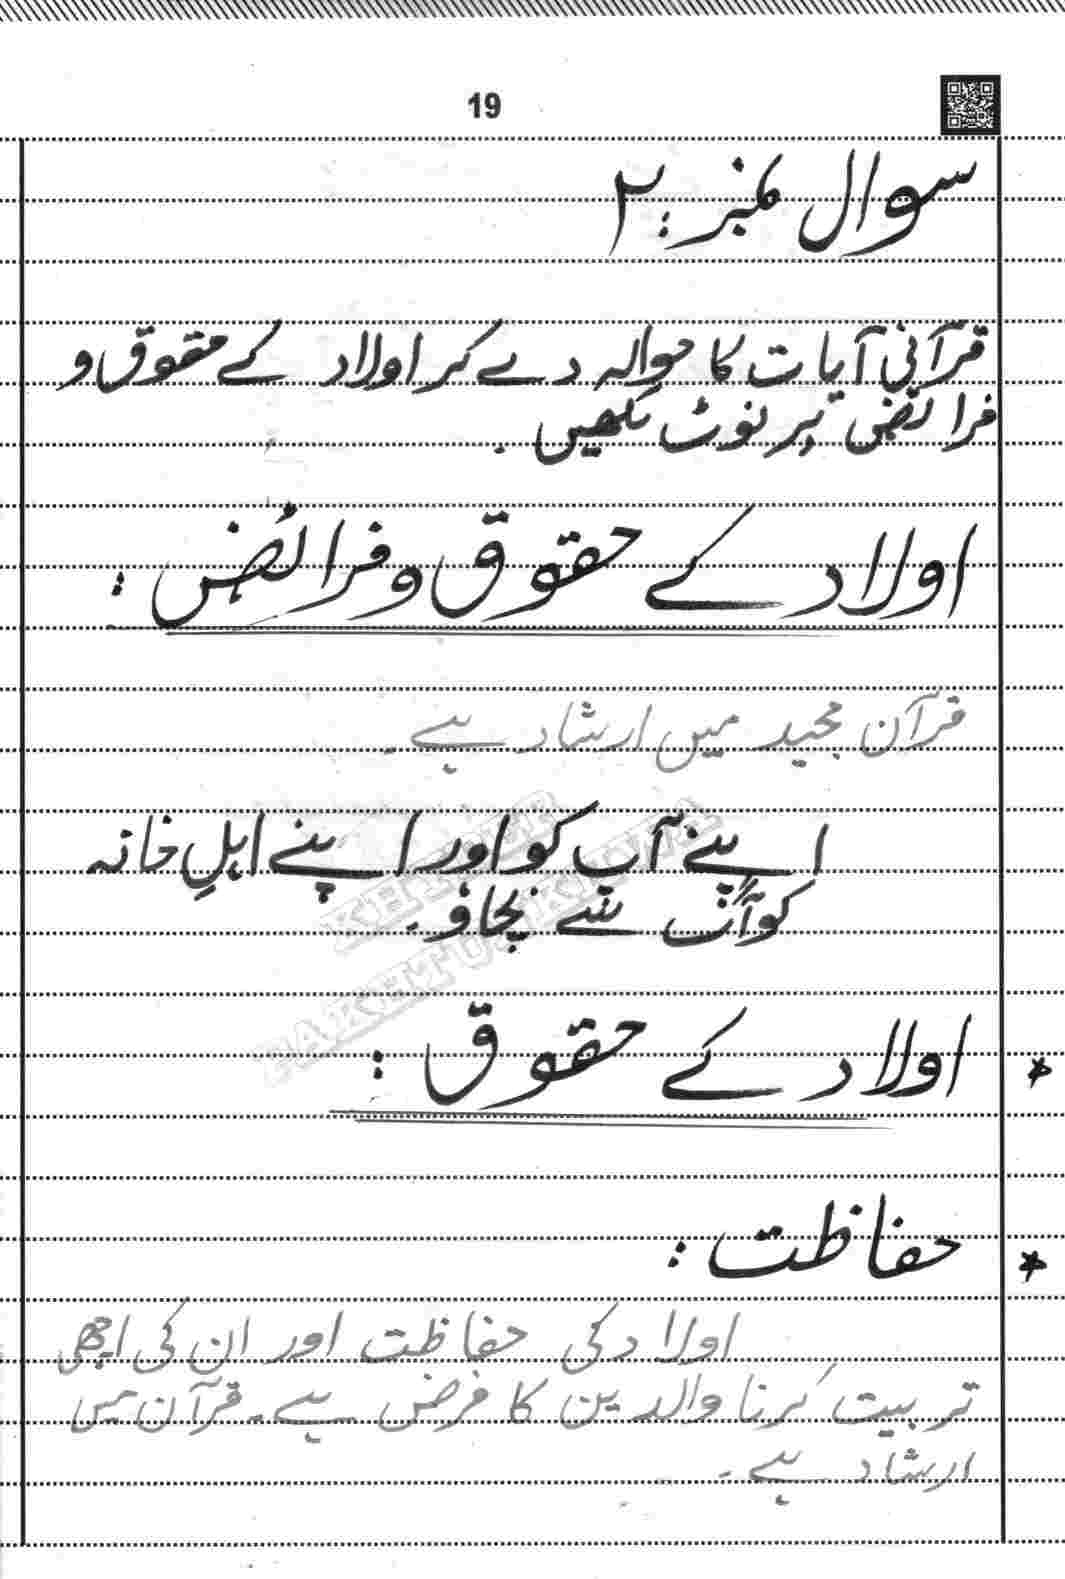 19
سوال نمبر : ۲
قرآنی آیات کا حوالہ دے کر اولاد کے حقوق و
فرائض پر نوٹ لکھیں .
اولاد کے حقوق و فرائض :
قرآن مجید میں ارشاد ہے ۔
اپنے آپ کو اور اپنے اہلِ خانہ
کو آگ سے بچاؤ ۔
KHYBER
PAKHTUNKHWA
* اولاد کے حقوق :
* حفاظت :
اولاد کی حفاظت اور ان کی اچھی
تربیت کرنا والدین کا فرض ہے ۔ قرآن میں
ارشاد ہے ۔